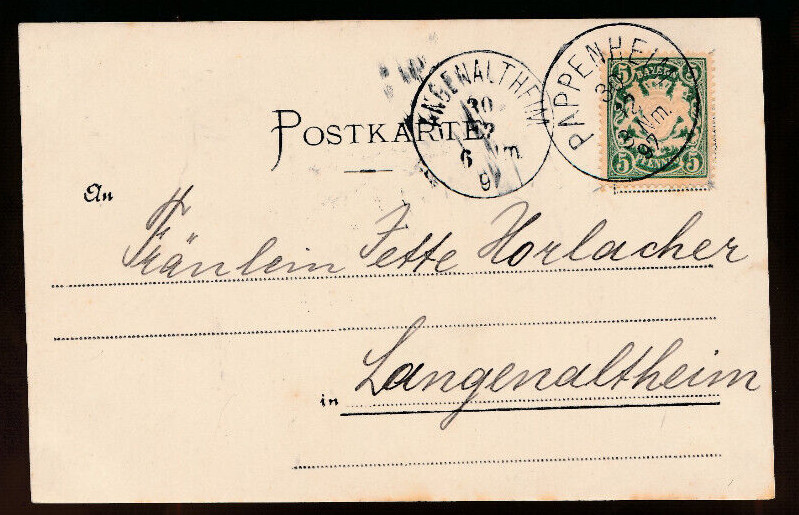 LANGENALTHEIM
30
6 Nm.
9
PAPPENHEIM
30
12
3 Nm.
97
5 BAYERN 5
5 PFENNIG 5
POSTKARTE
An
Fräulein Jette Horlacher
in Langenaltheim